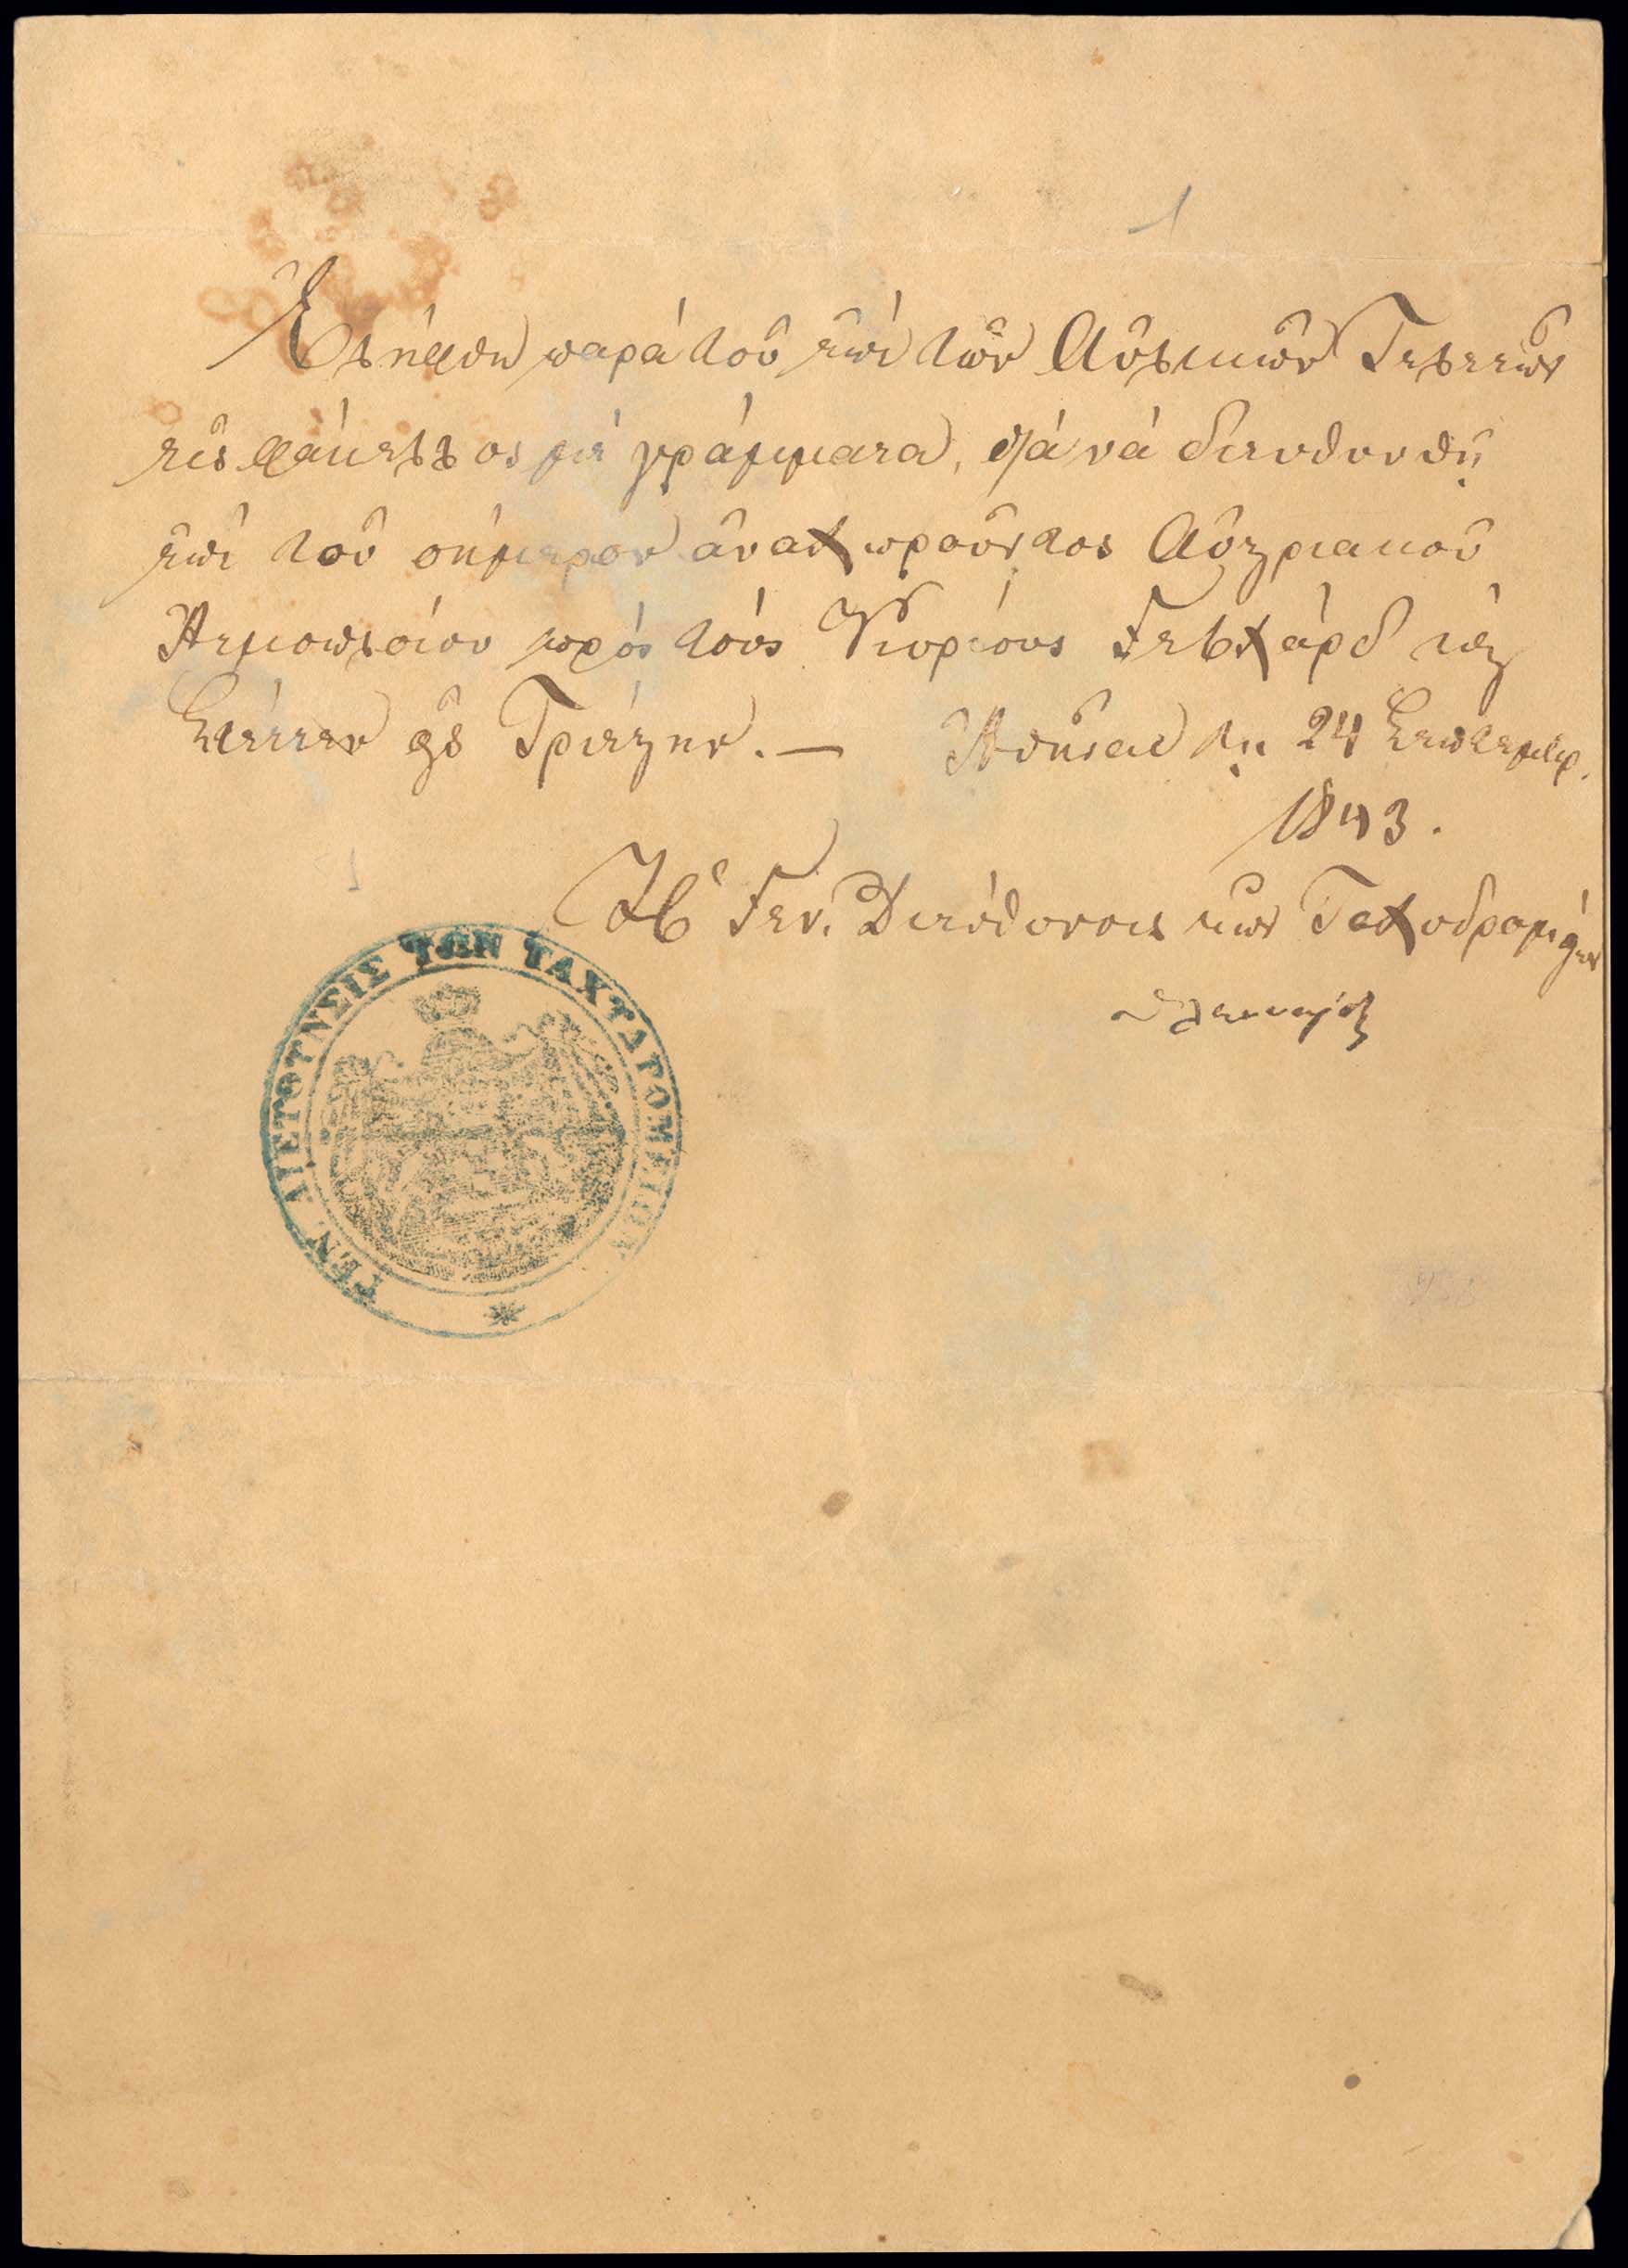 Ἐλήφθη παρὰ τοῦ ἐπὶ τῶν Αὐλικῶν Τελετῶν
εἷς φάκελλος μὲ γράμματα, διὰ νὰ διευθυνθῇ
ἐπὶ τοῦ σήμερον ἀναχωροῦντος Αὐστριακοῦ
Ἀτμοπλοίου πρὸς τοὺς Κυρίους Γεβχάρδ καὶ
εἰς Τριέστην. — Ἀθῆναι τῇ 24 Σεπτεμβρ.
1843.
Ἡ Γεν. Διεύθυνσις τῶν Ταχυδρομείων
ΓΕΝ. ΔΙΕΥΘΥΝΣΙΣ ΤΩΝ ΤΑΧΥΔΡΟΜΕΙΩΝ